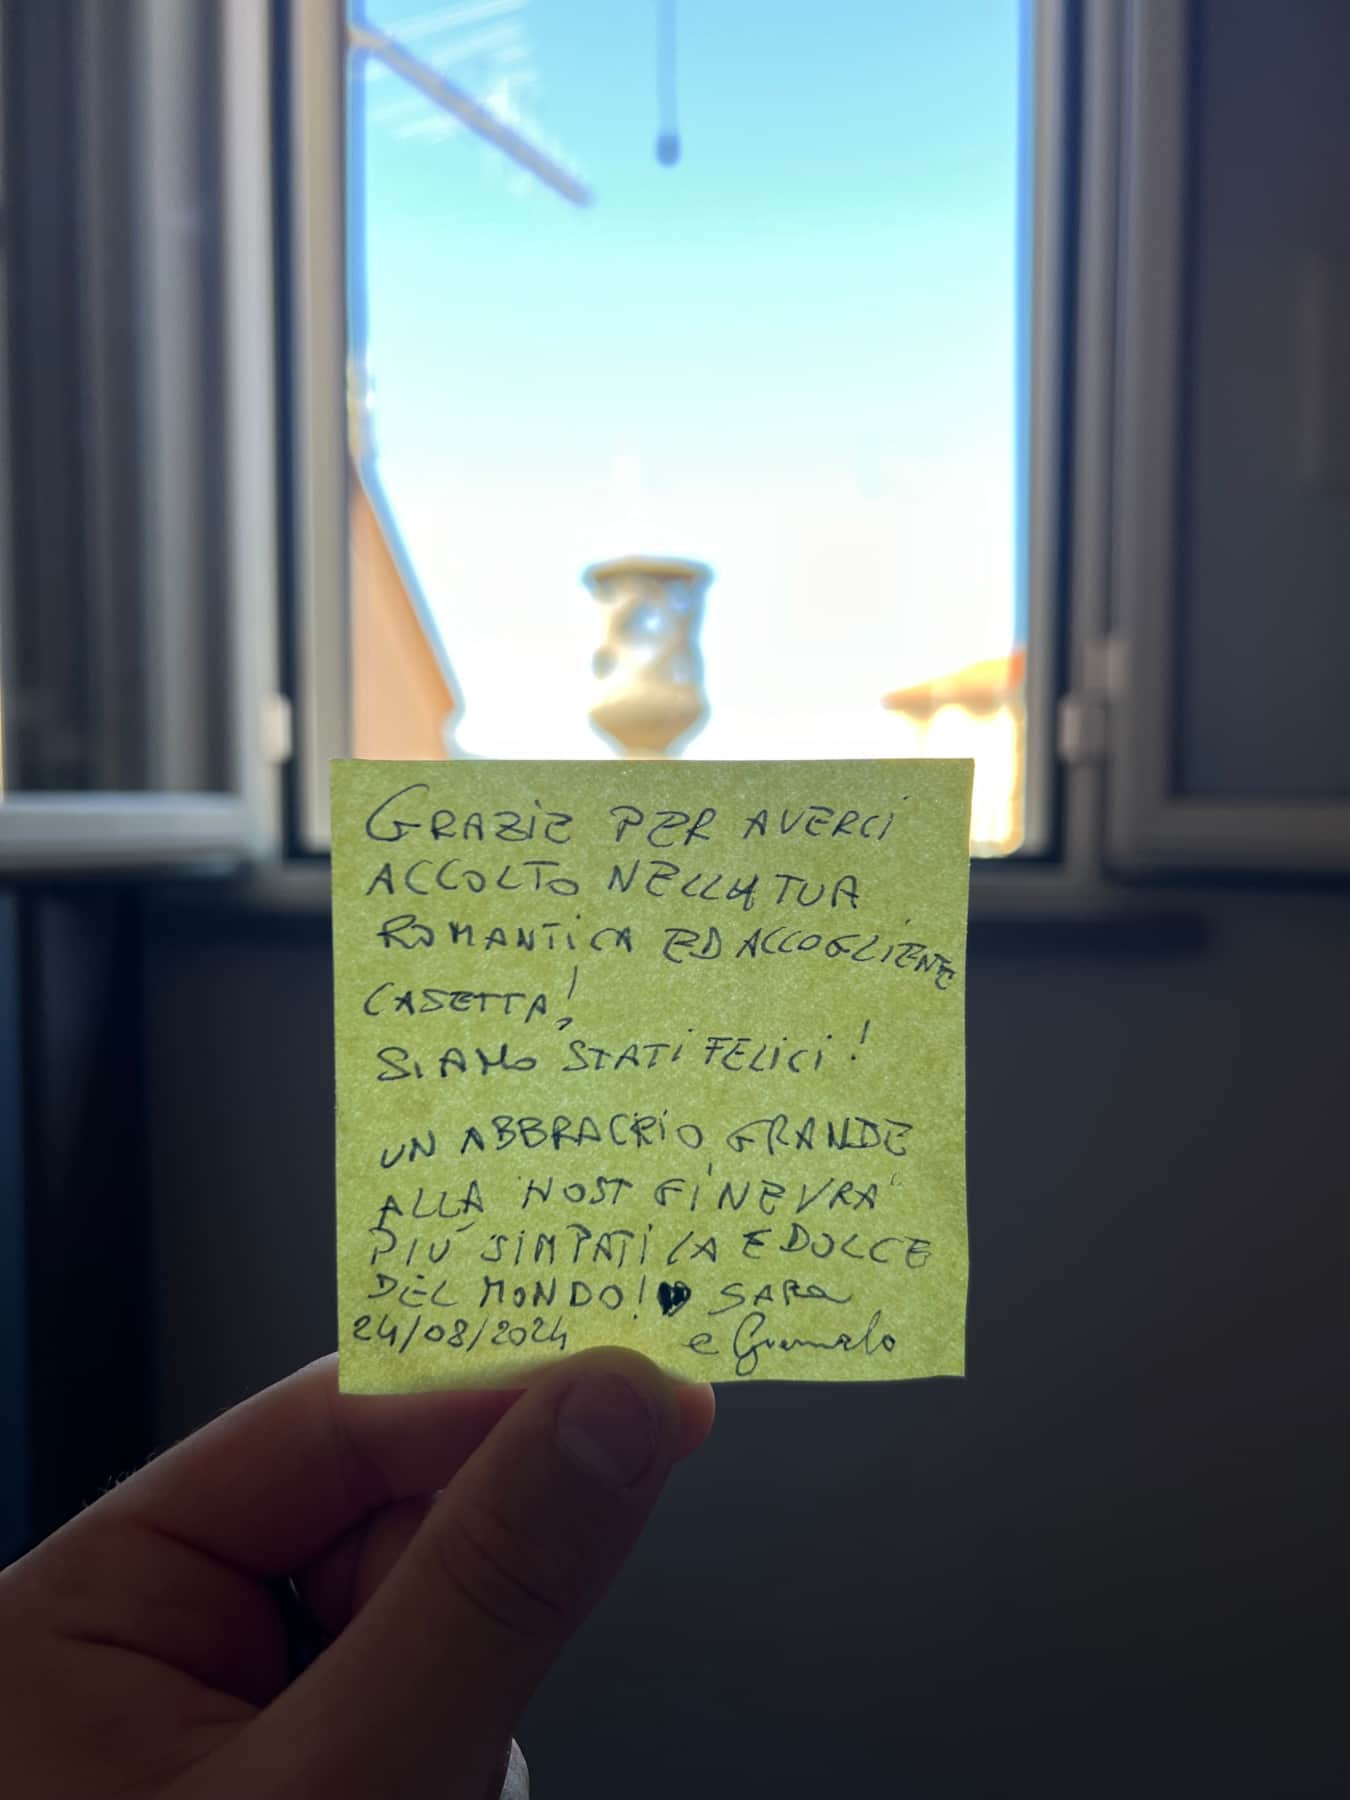 GRAZIE PER AVERCI
ACCOLTO NELLA TUA
ROMANTICA ED ACCOGLIENTE
CASETTA!
SIAMO STATI FELICI!
UN ABBRACCIO GRANDE
ALLA "HOST GINEVRA"
PIÙ SIMPATICA E DOLCE
DEL MONDO! ♥ SARA
24/08/2024 e